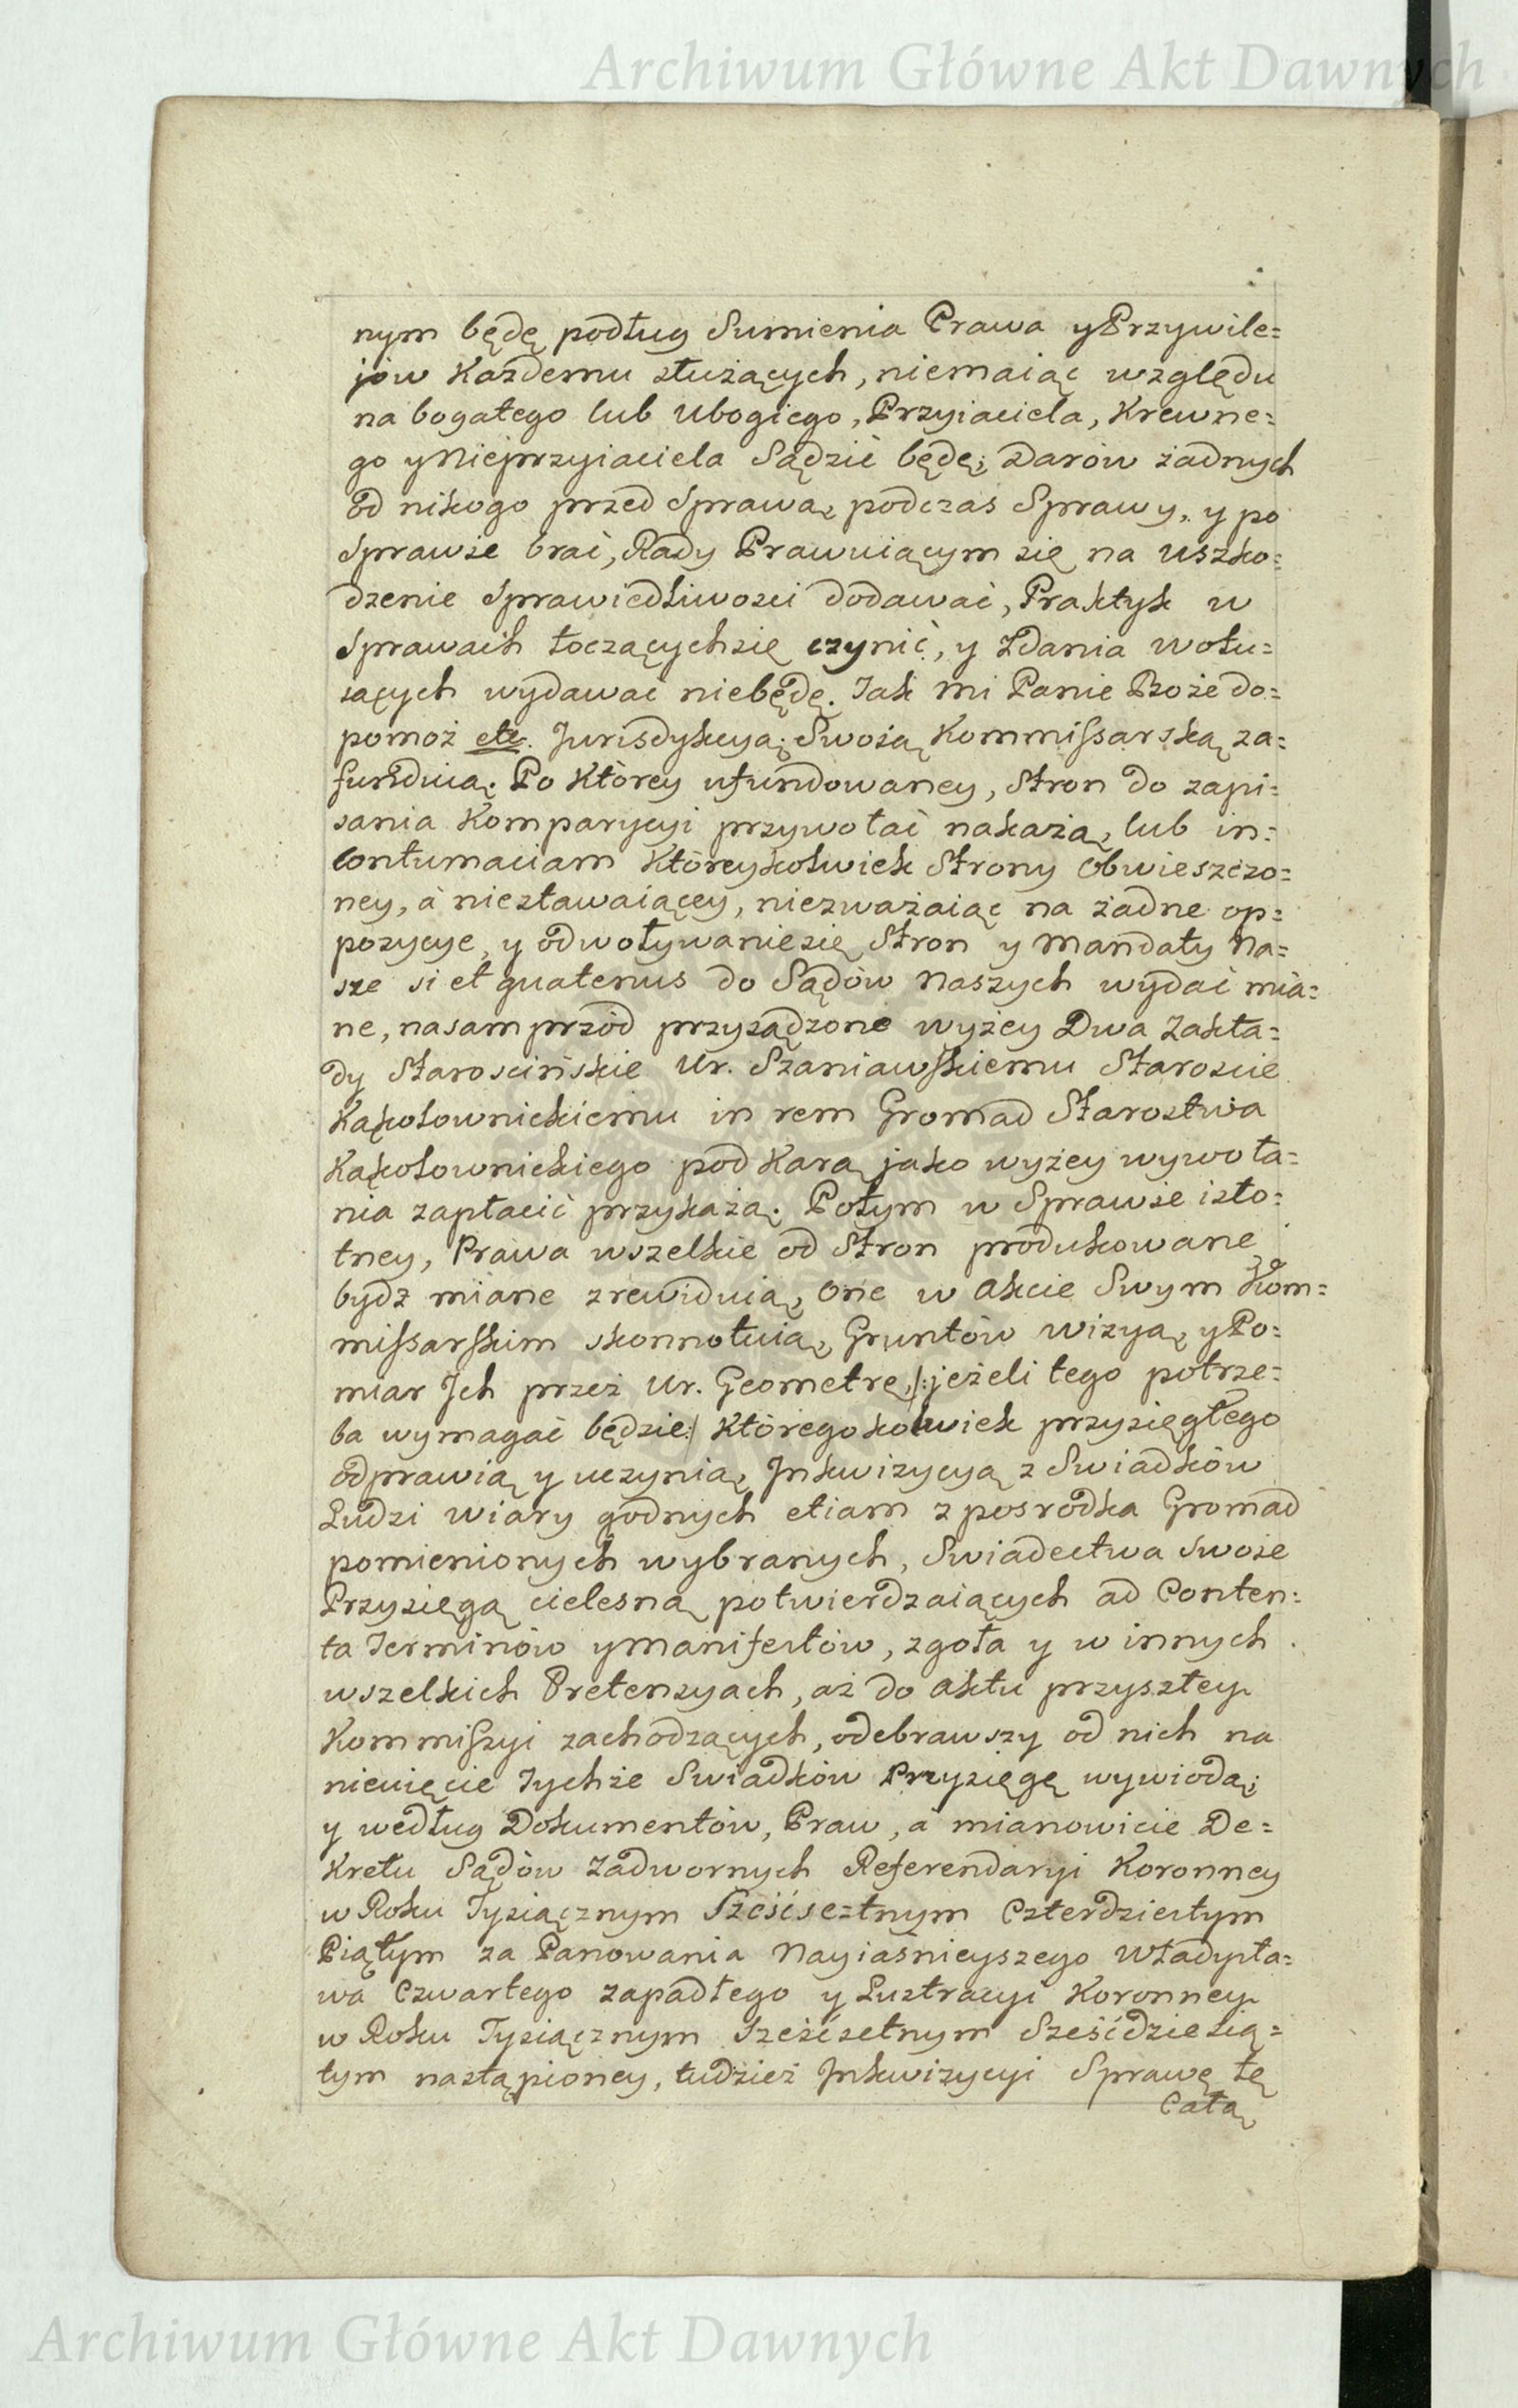 Archiwum Główne Akt Dawnych
nym będę podług Sumienia Prawa y Przywile=
jów Każdemu służących, niemaiąc względu
na bogatego lub Ubogiego, Przyiaciela, Krewne=
go y Nieprzyiaciela Sądzić będę; Darów żadnych
od nikogo przed Sprawą, podczas Sprawy, y po
Sprawie brać, Rady Prawuiącym się na uszko=
dzenie Sprawiedliwości dodawać, Praktyk w
Sprawach toczących się czynić, y Zdania wotu=
iących wydawać niebędę. Tak mi Panie Boże do=
pomoż etc. Jurisdykcyą Swoią Kommissarską za=
funduią. Po Którey ufundowaney, Stron do zapi=
sania Komparycyi przywołać nakażą, lub in=
Contumaciam Któreykolwiek Strony Obwieszczo=
ney, á niestawaiącey, niezważaiąc na żadne op=
pozycye, y odwoływaniesię Stron y Mandaty Na=
sze si et quatenus do Sądów Naszych wydać mia=
ne, nasamprzód przysądzone wyżey Dwa Zakła=
dy Starościńskie Ur. Szaniawskiemu Staroście
Kąkolownickiemu in rem Gromad Starostwa
Kąkolownickiego pod Karą jako wyżey wywoła=
nia zapłacić przykażą. Potym w Sprawie isto=
tney, Prawa wszelkie od Stron produkowane
bydź miane zrewiduią, One w Akcie Swym Kom=
missarskim skonnotuią, Gruntów wizyą, y Po=
miar Ich przez Ur. Geometrę /: jeżeli tego potrze=
ba wymagać będzie :/ Któregokolwiek przysięgłego
odprawią y uczynią, Inkwizycyą z Swiadków
Ludzi wiary godnych etiam z posrodka Gromad
pomienionych wybranych, Swiadectwa swoie
Przysięgą cielesną potwierdzaiących ad Conten=
ta Terminów y Manifestów, zgoła y w innych
wszelkich Pretensyach, aż do Aktu przyszłey
Kommissyi zachodzących, odebrawszy od nich na
nieuięcie Tychże Swiadków Przysięgę wywiodą;
y według Dokumentów, Praw, á mianowicie De=
kretu Sądów Zadwornych Referendaryi Koronney
w Roku Tysiącznym Sześćsetnym Czterdziestym
Piątym za Panowania Nayiaśnieyszego Władysła=
wa Czwartego zapadłego y Lustracyi Koronney
w Roku Tysiącznym Sześćsetnym Sześćdziesią=
tym nastąpioney, tudzież Inkwizycyi Sprawę tę
Całą
Archiwum Główne Akt Dawnych